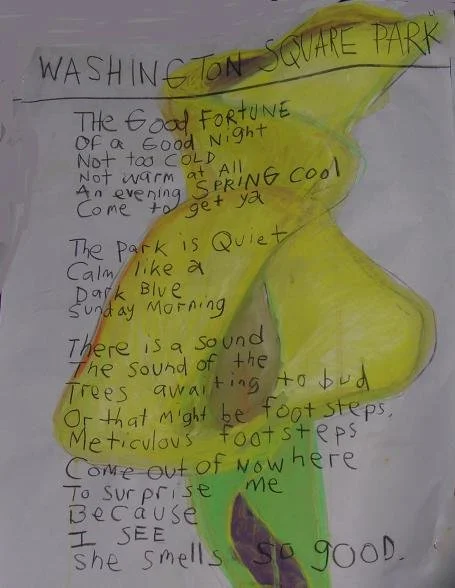 WASHINGTON SQUARE PARK
THE GOOD FORTUNE
OF a GOOD Night
Not too COLD
Not warm at All
An evening SPRING COOl
Come to get ya
The park is Quiet
Calm like a
Dark Blue
Sunday Morning
There is a sound
The sound of the
Trees awaiting to bud
Or that might be foot steps.
Meticulous footsteps
Come out of Nowhere
To surprise me
Because
I SEE
She smells so gOOD.